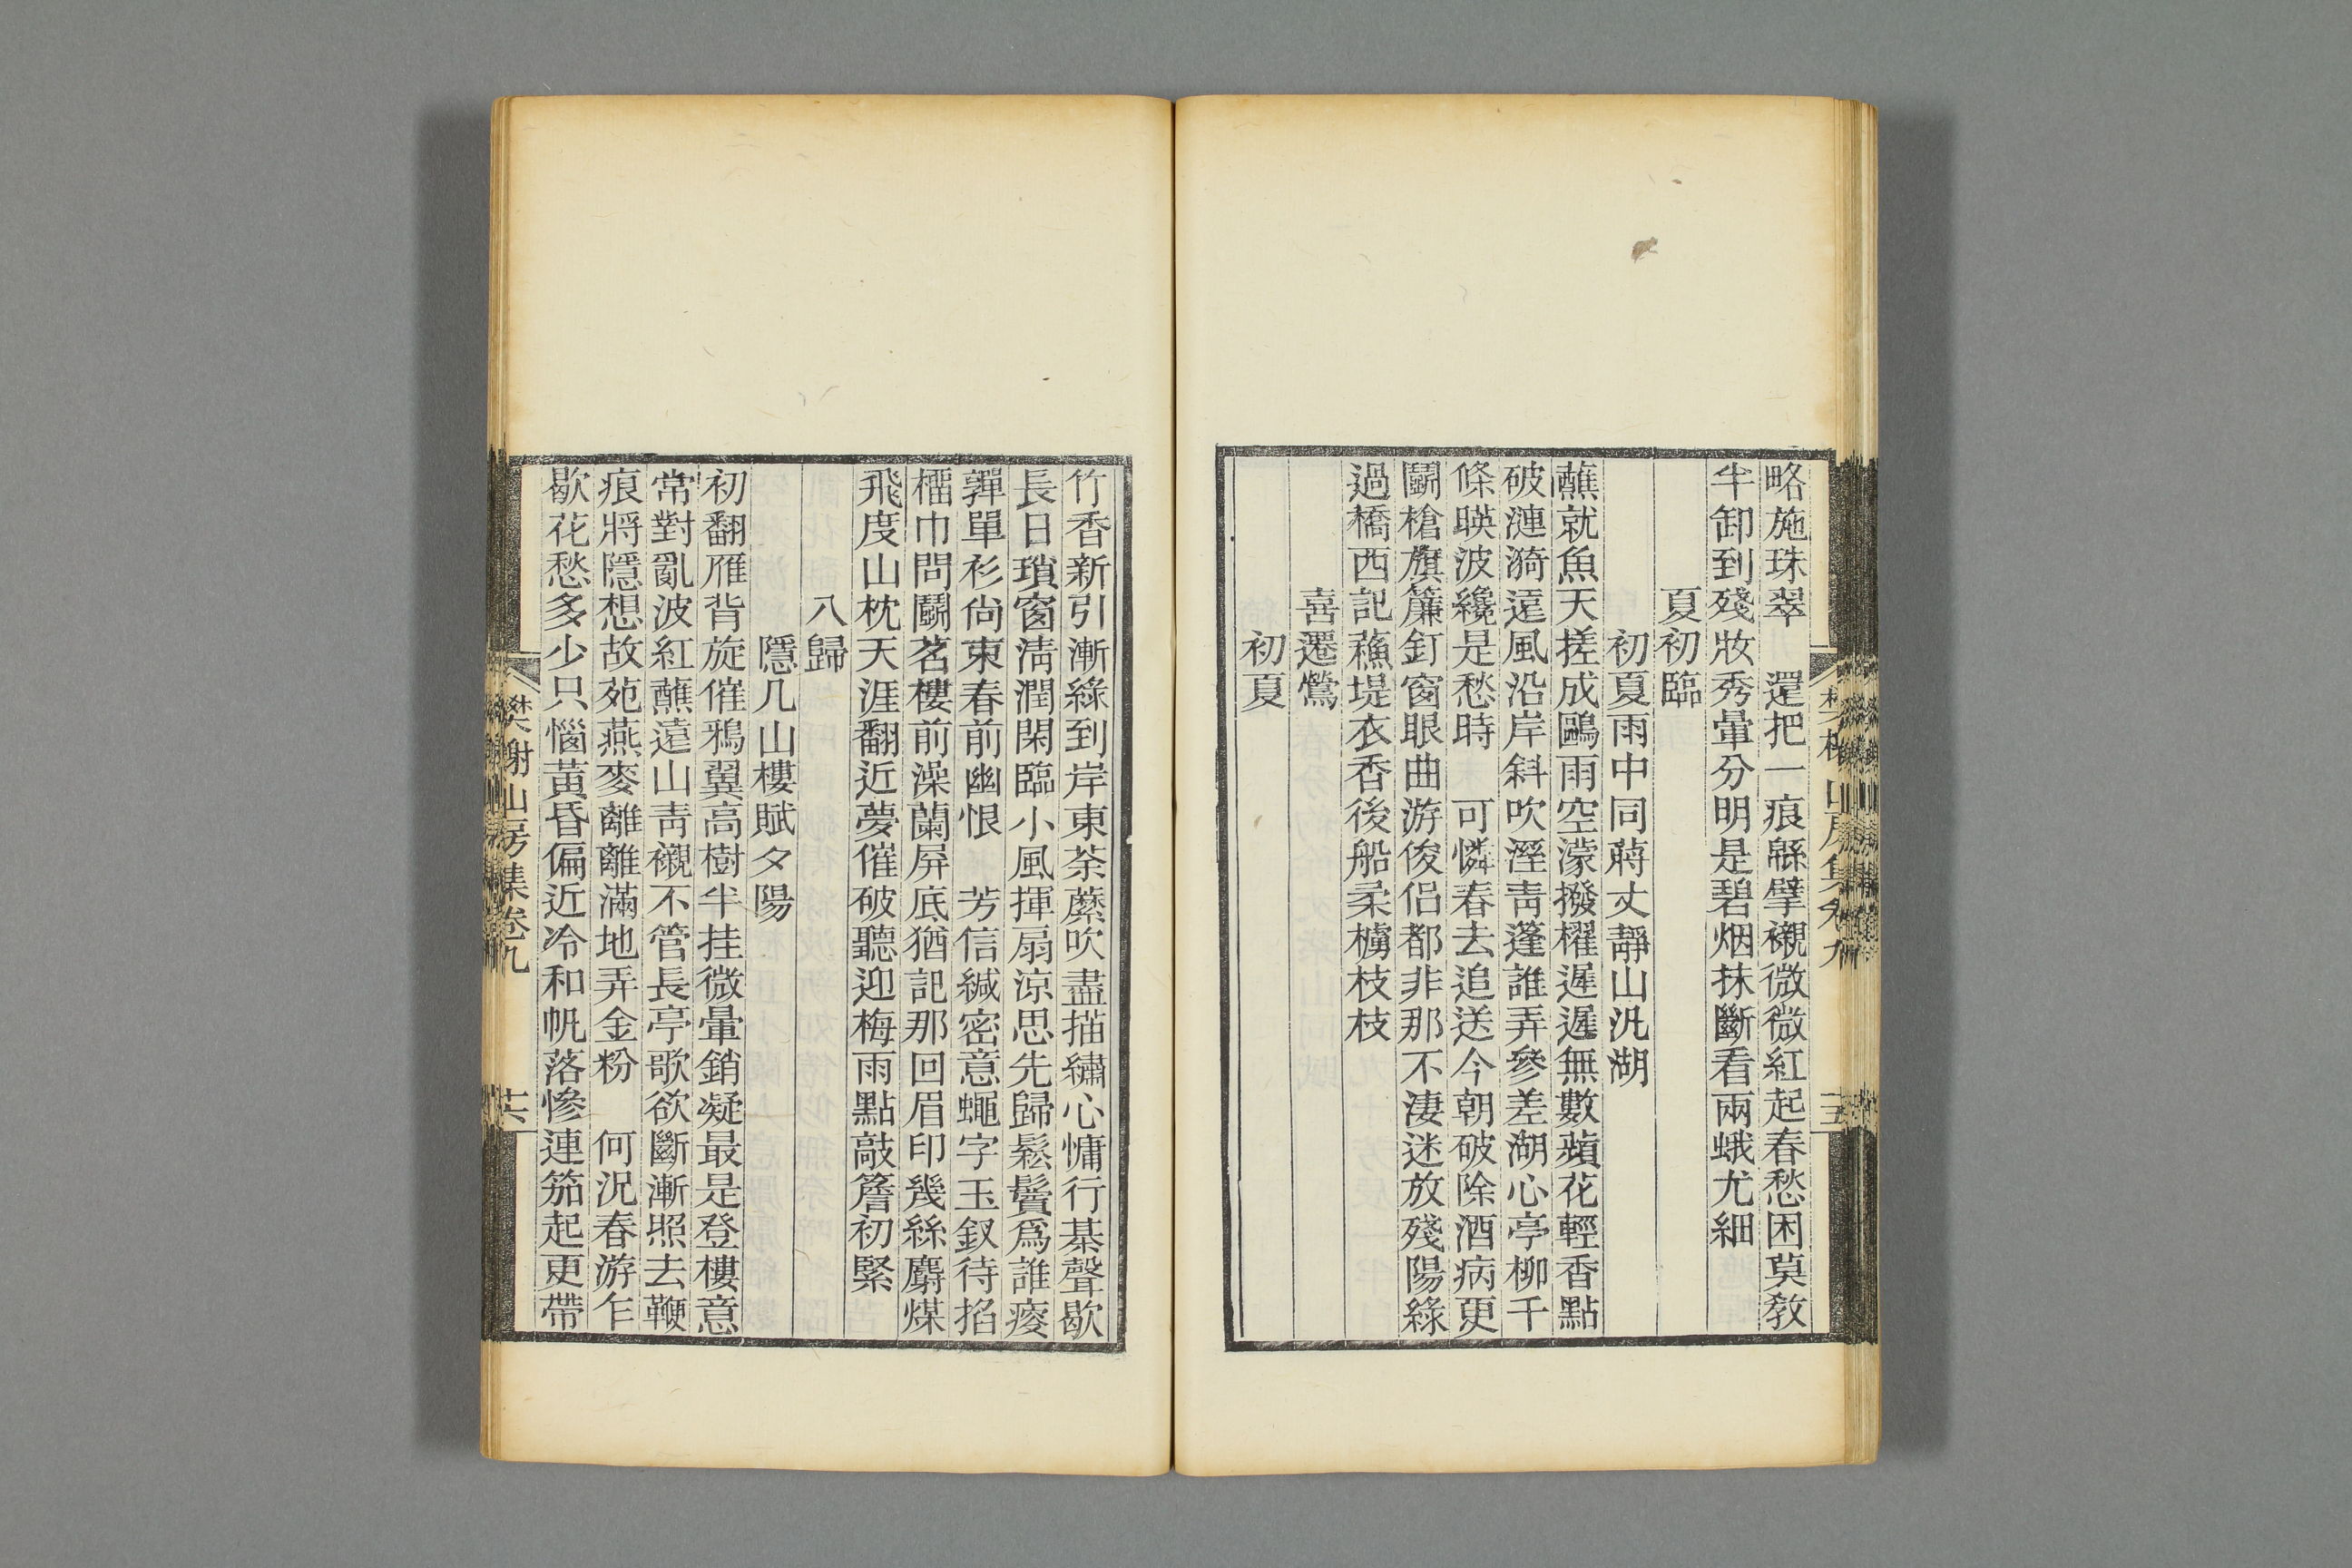 略施珠翠　還把一痕緜擘襯微微紅起春愁困莫教
半卸到殘妝秀暈分明是碧烟抹斷看兩蛾尤細
夏初臨
初夏雨中同蔣丈靜山汎湖
蘸就魚天搓成鷗雨空濛撥櫂遲遲無數蘋花輕香點
破漣漪遠風沿岸斜吹溼青蓬誰弄參差湖心亭柳千
條暎波纔是愁時　可憐春去追送今朝破除酒病更
鬭槍旗簾釘窗眼曲游俊侶都非那不淒迷放殘陽綠
過橋西記蘓堤衣香後船柔櫓枝枝
喜遷鶯
初夏
竹香新引漸綠到岸東荼蘼吹盡描繡心慵行棊聲歇
長日瑣窗淸潤閑臨小風揮扇涼思先歸鬆鬢爲誰痠
嚲單衫尙東春前幽恨　芳信緘密意蠅字玉釵待掐
橊巾問鬭茗樓前澡蘭屏底猶記那回眉印幾絲麝煤
飛度山枕天涯翻近夢催破聽迎梅雨點敲簷初緊
八歸
隱几山樓賦夕陽
初翻雁背旋催鴉翼高樹半挂微暈銷凝最是登樓意
常對亂波紅蘸遠山靑襯不管長亭歌欲斷漸照去鞭
痕將隱想故苑燕麥離離滿地弄金粉　何況春游乍
歇花愁多少只惱黃昏偏近冷和帆落慘連笳起更帶
樊榭山房集卷九
十六